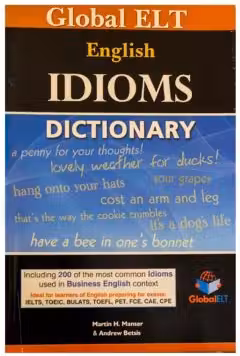 Global ELT
English
IDIOMS
DICTIONARY
a penny for your thoughts!
lovely weather for ducks!
hang onto your hats
sour grapes
cost an arm and leg
that's the way the cookie crumbles
it's a dog's life
have a bee in one's bonnet
including 200 of the most common Idioms
used in Business English context
Ideal for learners of English preparing for exams:
IELTS, TOEIC, BULATS, TOEFL, PET, FCE, CAE, CPE
GlobalELT
Martin H. Manser
& Andrew Betsis